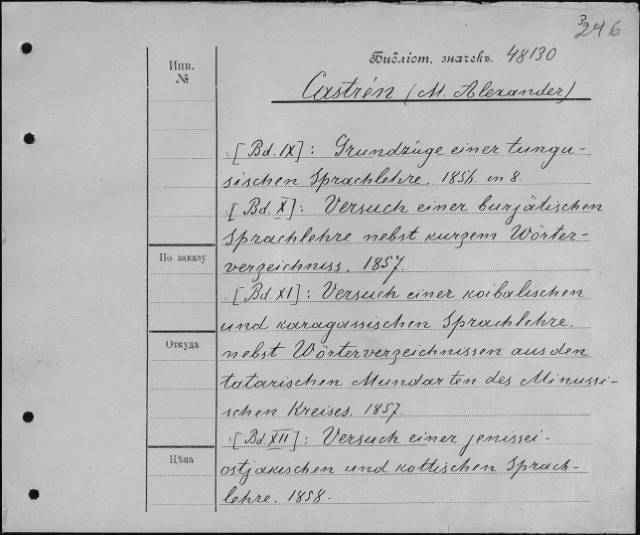 3246
Инв.
№
Библіот. значекъ. 48130
Castrén (M. Alexander)
[Bd. IX]: Grundzüge einer tungu-
sischen Sprachlehre. 1856 in 8.
[Bd. X]: Versuch einer burjätischen
Sprachlehre nebst kurzem Wörter-
По заказу
verzeichniss. 1857.
[Bd. XI]: Versuch einer koibalischen
und karagassischen Sprachlehre.
Откуда
nebst Wörterverzeichnissen aus den
tatarischen Mundarten des Minussi-
schen Kreises. 1857.
[Bd. XII]: Versuch einer jenissei-
Цѣна
ostjakischen und kottischen Sprach-
lehre. 1858.